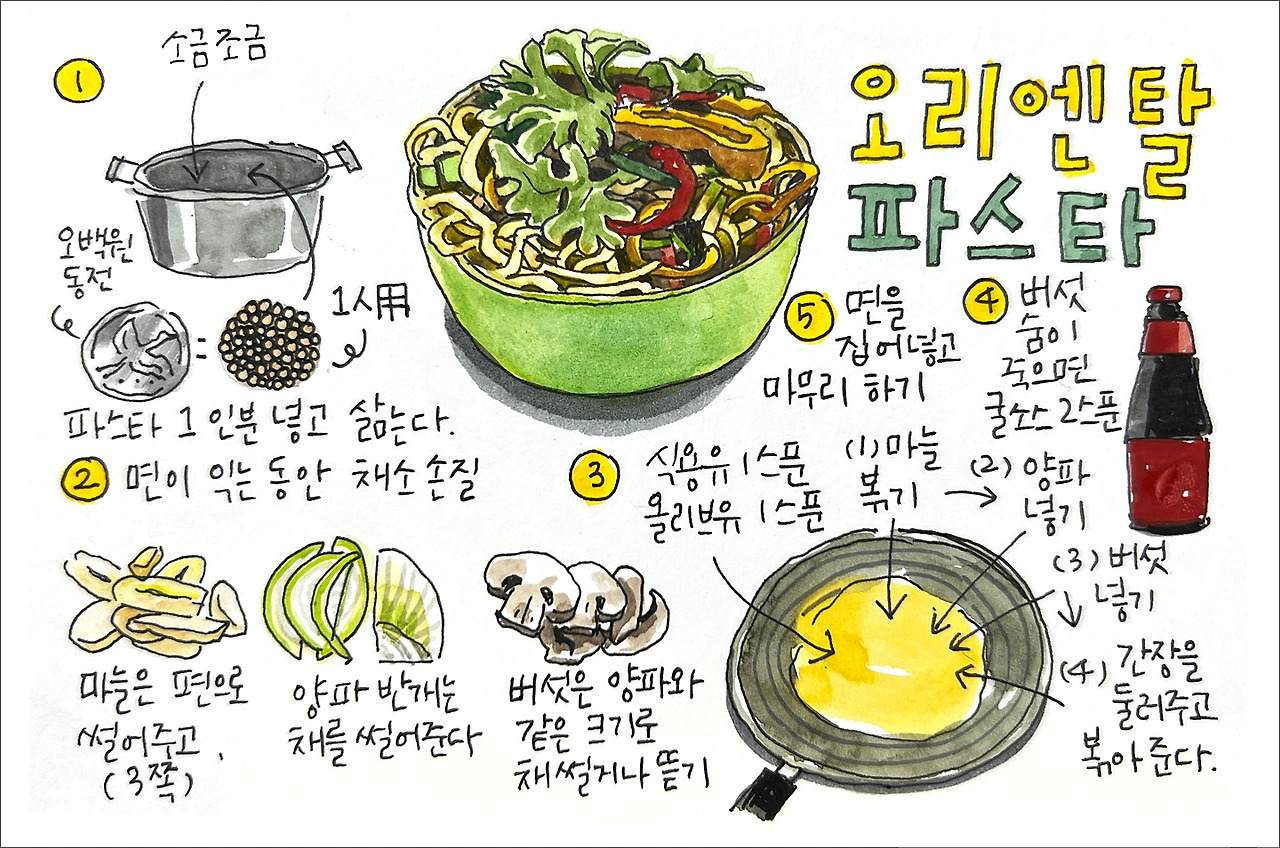 오리엔탈
파스타
1
소금 조금
오백원
동전
=
1人用
파스타 1인분 넣고 삶는다.
2 면이 익는 동안 채소 손질
마늘은 편으로
썰어주고,
(3쪽)
양파 반개는
채를 썰어준다
버섯은 양파와
같은 크기로
채썰거나 뜯기
3
식용유 1스푼
올리브유 1스푼
(1) 마늘
볶기
(2) 양파
넣기
(3) 버섯
넣기
(4) 간장을
둘러주고
볶아준다.
4 버섯
숨이
죽으면
굴소스 2스푼
5 면을
집어넣고
마무리 하기